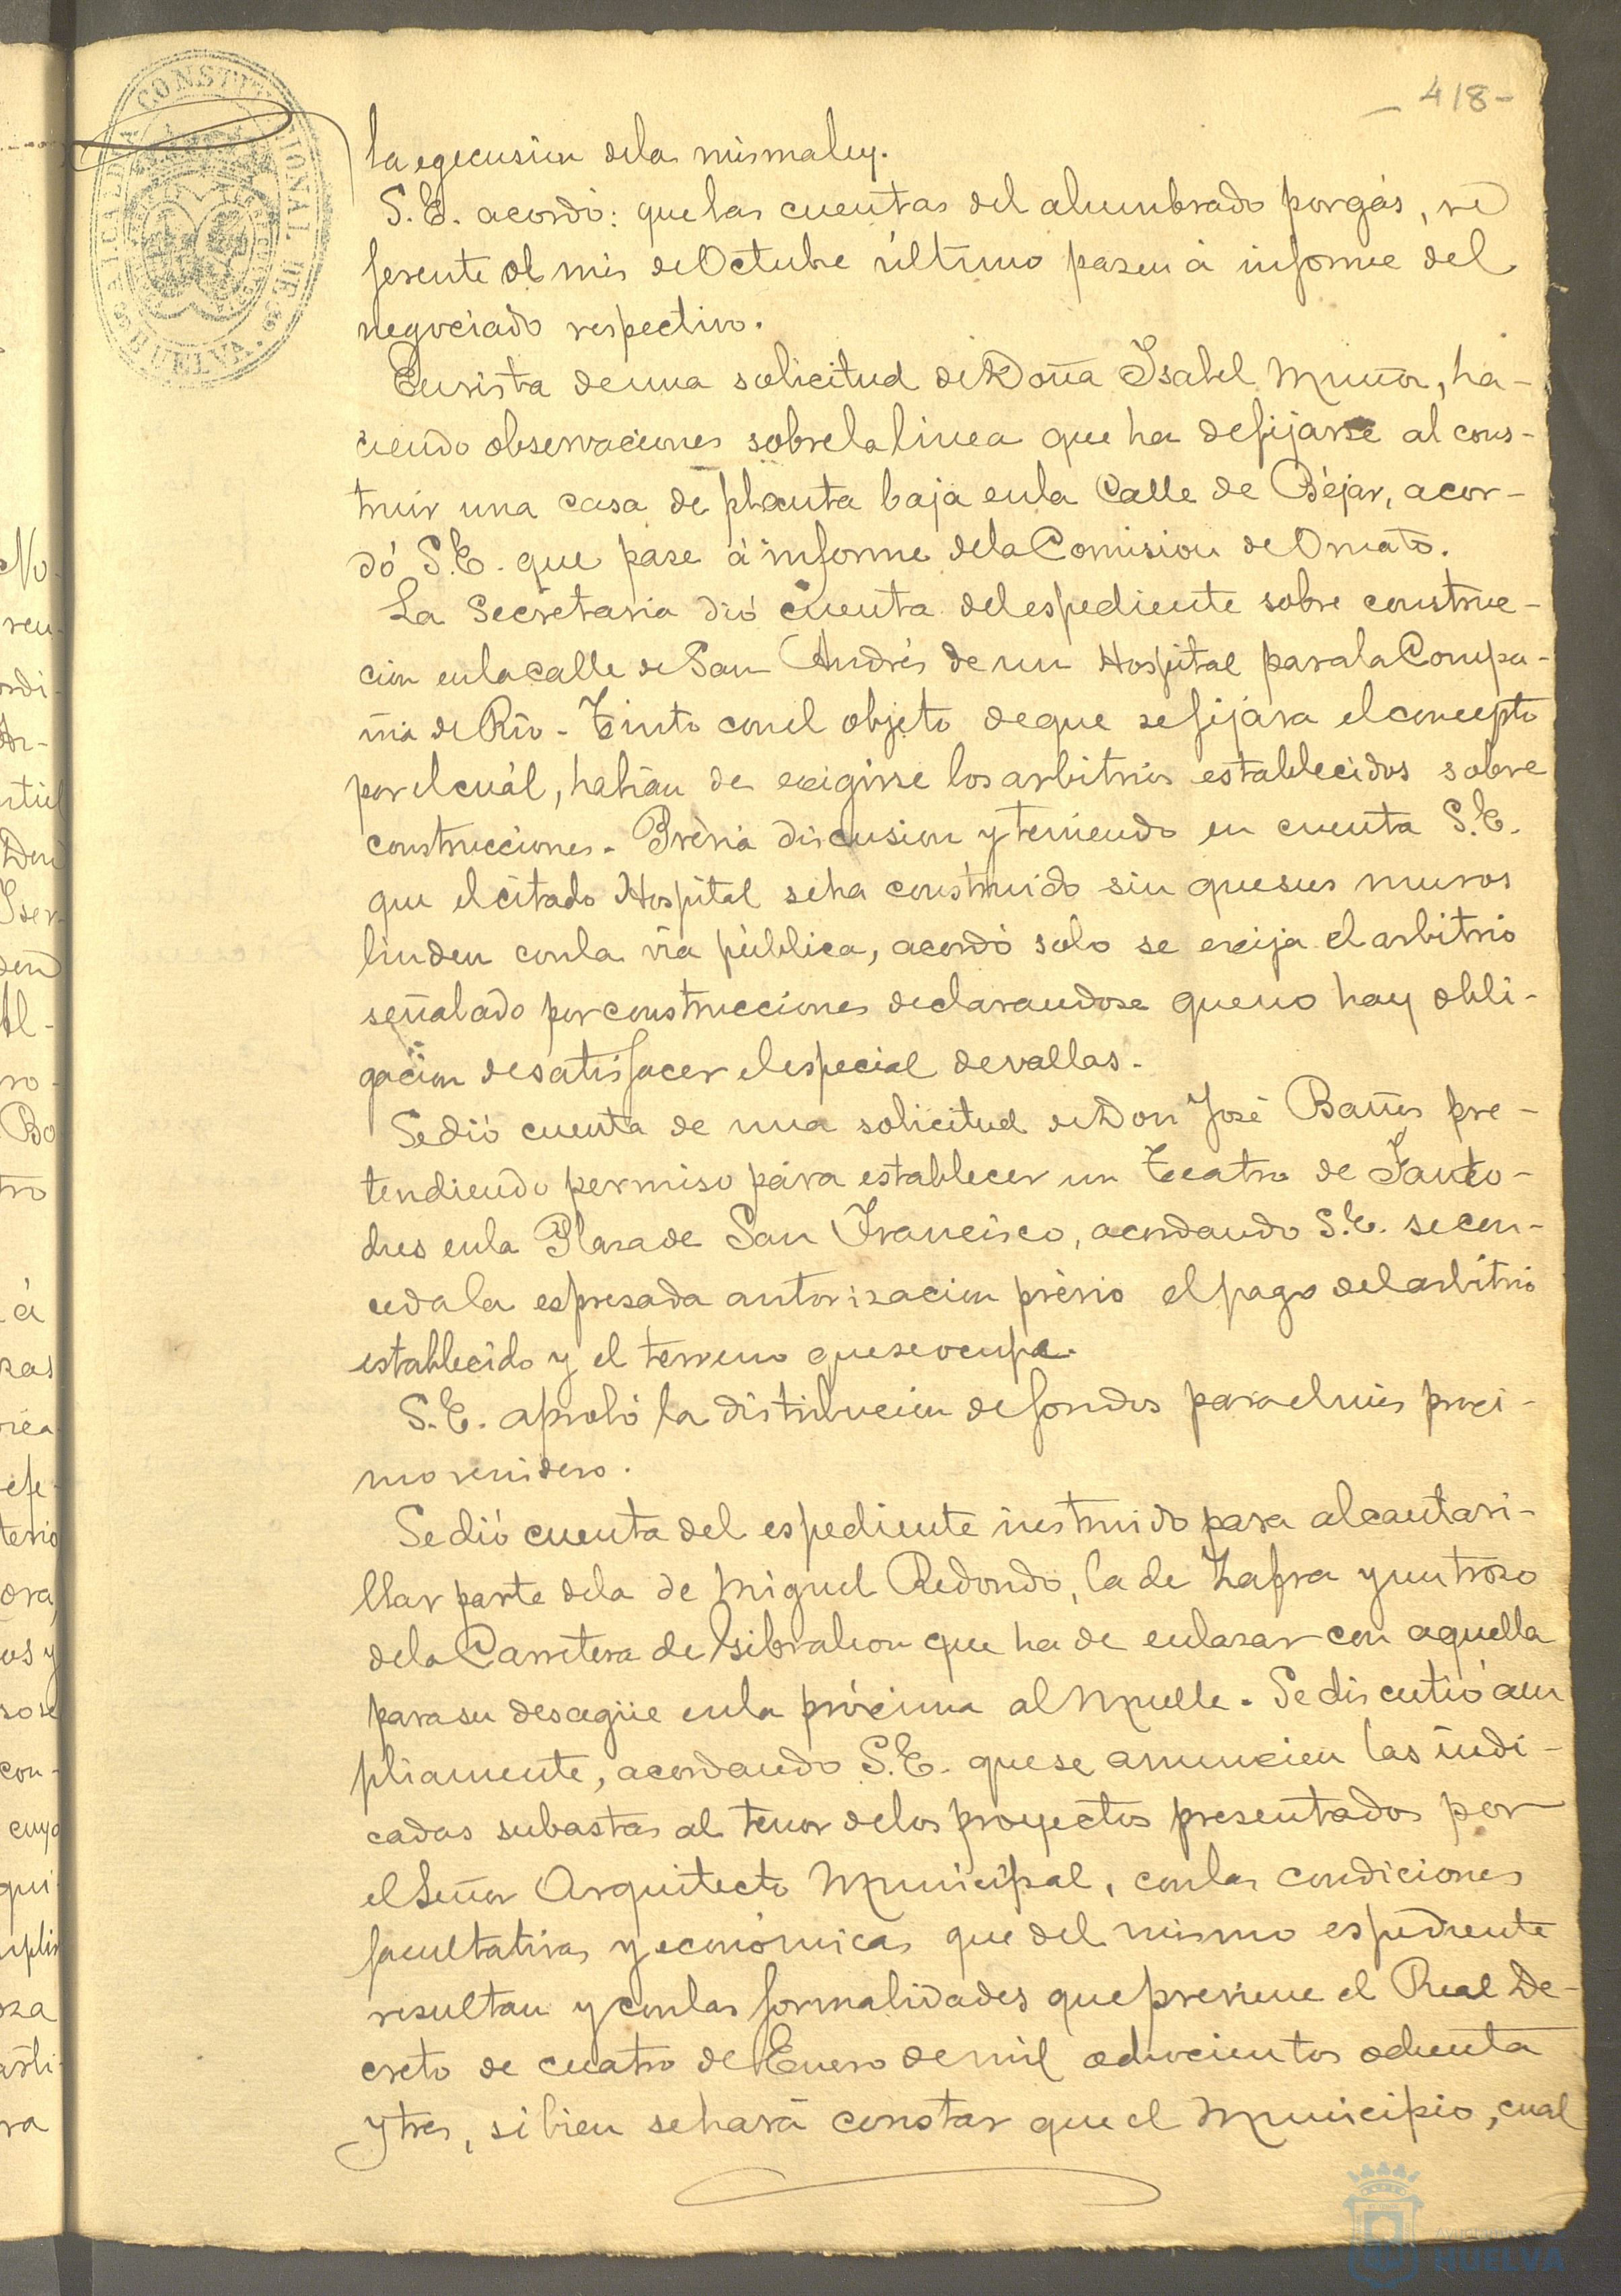 - 418 -
ALCALDIA CONSTITUCIONAL DE HUELVA
la egecusion dela misma ley.
S.E. acordó: que las cuentas del alumbrado por gás, re
ferente al mes de Octubre último pasen á informe del
negociado respectivo.
En vista de una solicitud de Doña Isabel Muñoz, ha-
ciendo observaciones sobre la linea que ha de fijarse al cons-
truir una casa de planta baja en la Calle de Béjar, acor-
dó S.E. que pase á informe dela Comision de Ornato.
La Secretaria dió cuenta del espediente sobre construc-
cion en la calle de San Andrés de un Hospital para la Compa-
ñia de Rio-Tinto con el objeto de que se fijára el concepto
por el cuál, habian de exigirse los arbitrios establecidos sobre
construcciones. Prévia discusion y teniendo en cuenta S.E.
que el citado Hospital se ha construido sin que sus muros
linden con la via pública, acordó solo se exija el arbitrio
señalado por construcciones declarandose que no hay obli-
gacion de satisfacer el especial de vallas.
Se dió cuenta de una solicitud de Don José Bañes pre-
tendiendo permiso para establecer un Teatro de Fanto-
ches en la Plaza de San Francisco, acordando S.E. se con-
ceda la espresada autorizacion prévio el pago del arbitrio
establecido y el terreno que se ocupe.
S.E. aprobó la distribucion de fondos para el mes proxi-
mo venidero.
Se dió cuenta del espediente instruido para alcantari-
llar parte dela de Miguel Redondo, la de Zafra y un trozo
dela Carretera de Gibraleon que ha de enlazar con aquella
para su desagüe en la próxima al Muelle. Se discutió am
pliamente, acordando S.E. que se anuncien las indi-
cadas subastas al tenor delos proyectos presentados por
el Señor Arquitecto Municipal, con las condiciones
facultativas y económicas que del mismo espediente
resultan y con las formalidades que previene el Real De-
creto de cuatro de Enero de mil ochocientos ochenta
y tres, si bien se hará constar que el Municipio, cual
Ayuntamiento
HUELVA